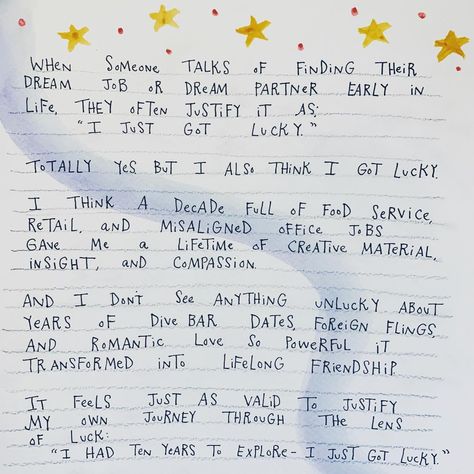 WHEN SOMEONE TALKS OF FINDING THEIR
DREAM JOB OR DREAM PARTNER EARLY IN
LIFE, THEY OFTEN JUSTIFY IT AS:
"I JUST GOT LUCKY."
TOTALLY YES. BUT I ALSO THINK I GOT LUCKY.
I THINK A DECADE FULL OF FOOD SERVICE,
RETAIL, AND MISALIGNED OFFICE JOBS
GAVE ME A LIFETIME OF CREATIVE MATERIAL,
INSIGHT, AND COMPASSION.
AND I DON'T SEE ANYTHING UNLUCKY ABOUT
YEARS OF DIVE BAR DATES, FOREIGN FLINGS,
AND ROMANTIC LOVE SO POWERFUL IT
TRANSFORMED INTO LIFELONG FRIENDSHIP.
IT FEELS JUST AS VALID TO JUSTIFY
MY OWN JOURNEY THROUGH THE LENS
OF LUCK:
"I HAD TEN YEARS TO EXPLORE- I JUST GOT LUCKY."